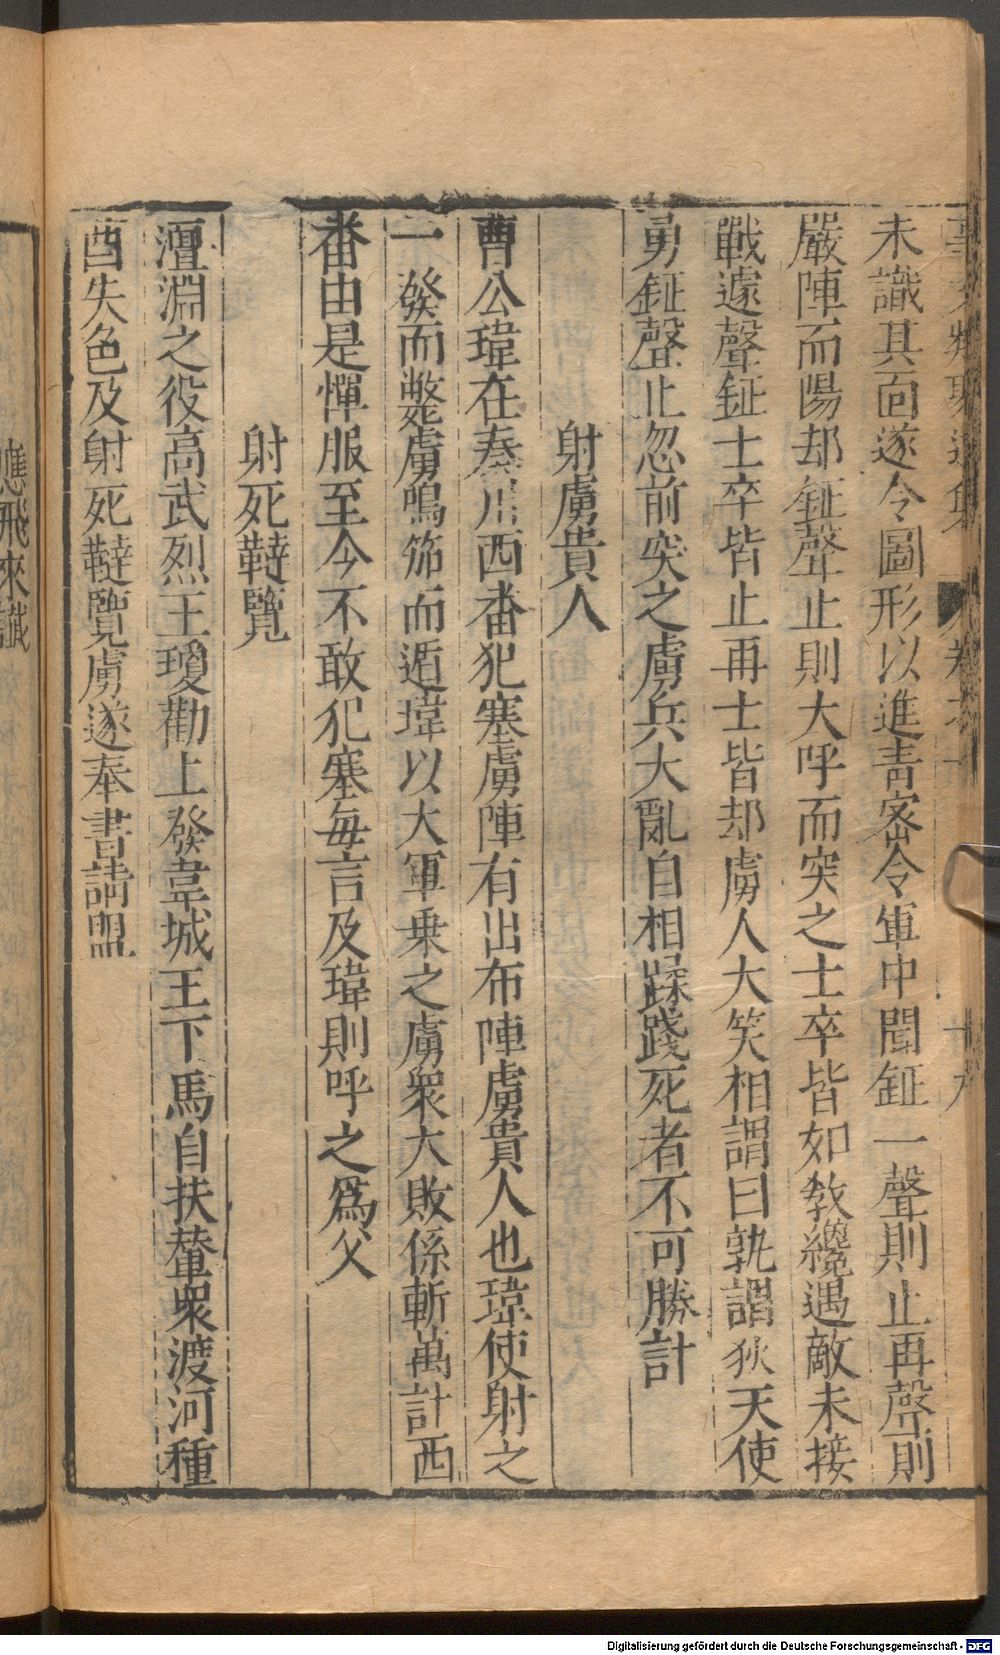 未識其面遂令圖形以進青密令軍中聞鉦一聲則止再聲則
嚴陣而陽却鉦聲止則大呼而突之士卒皆如教纔遇敵未接
戰遽聲鉦士卒皆止再士皆却虜人大笑相謂曰孰謂狄天使
勇鉦聲止忽前突之虜兵大亂自相蹂踐死者不可勝計
射虜貴人
曹公瑋在秦州西番犯塞虜陣有出布陣虜貴人也瑋使射之
一發而斃虜鳴笳而遁瑋以大軍乗之虜衆大敗係斬萬計西
番由是憚服至今不敢犯塞毎言及瑋則呼之爲父
射死韃覽
澶淵之役高武烈王瓊勸上發韋城王下馬自扶輦衆渡河種
酋失色及射死韃覽虜遂奉書請盟
應飛來讖
Digitalisierung gefördert durch die Deutsche Forschungsgemeinschaft - DFG